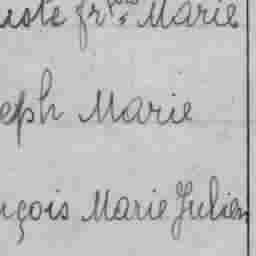 uste frçois Marie
eph Marie
nçois Marie Julien